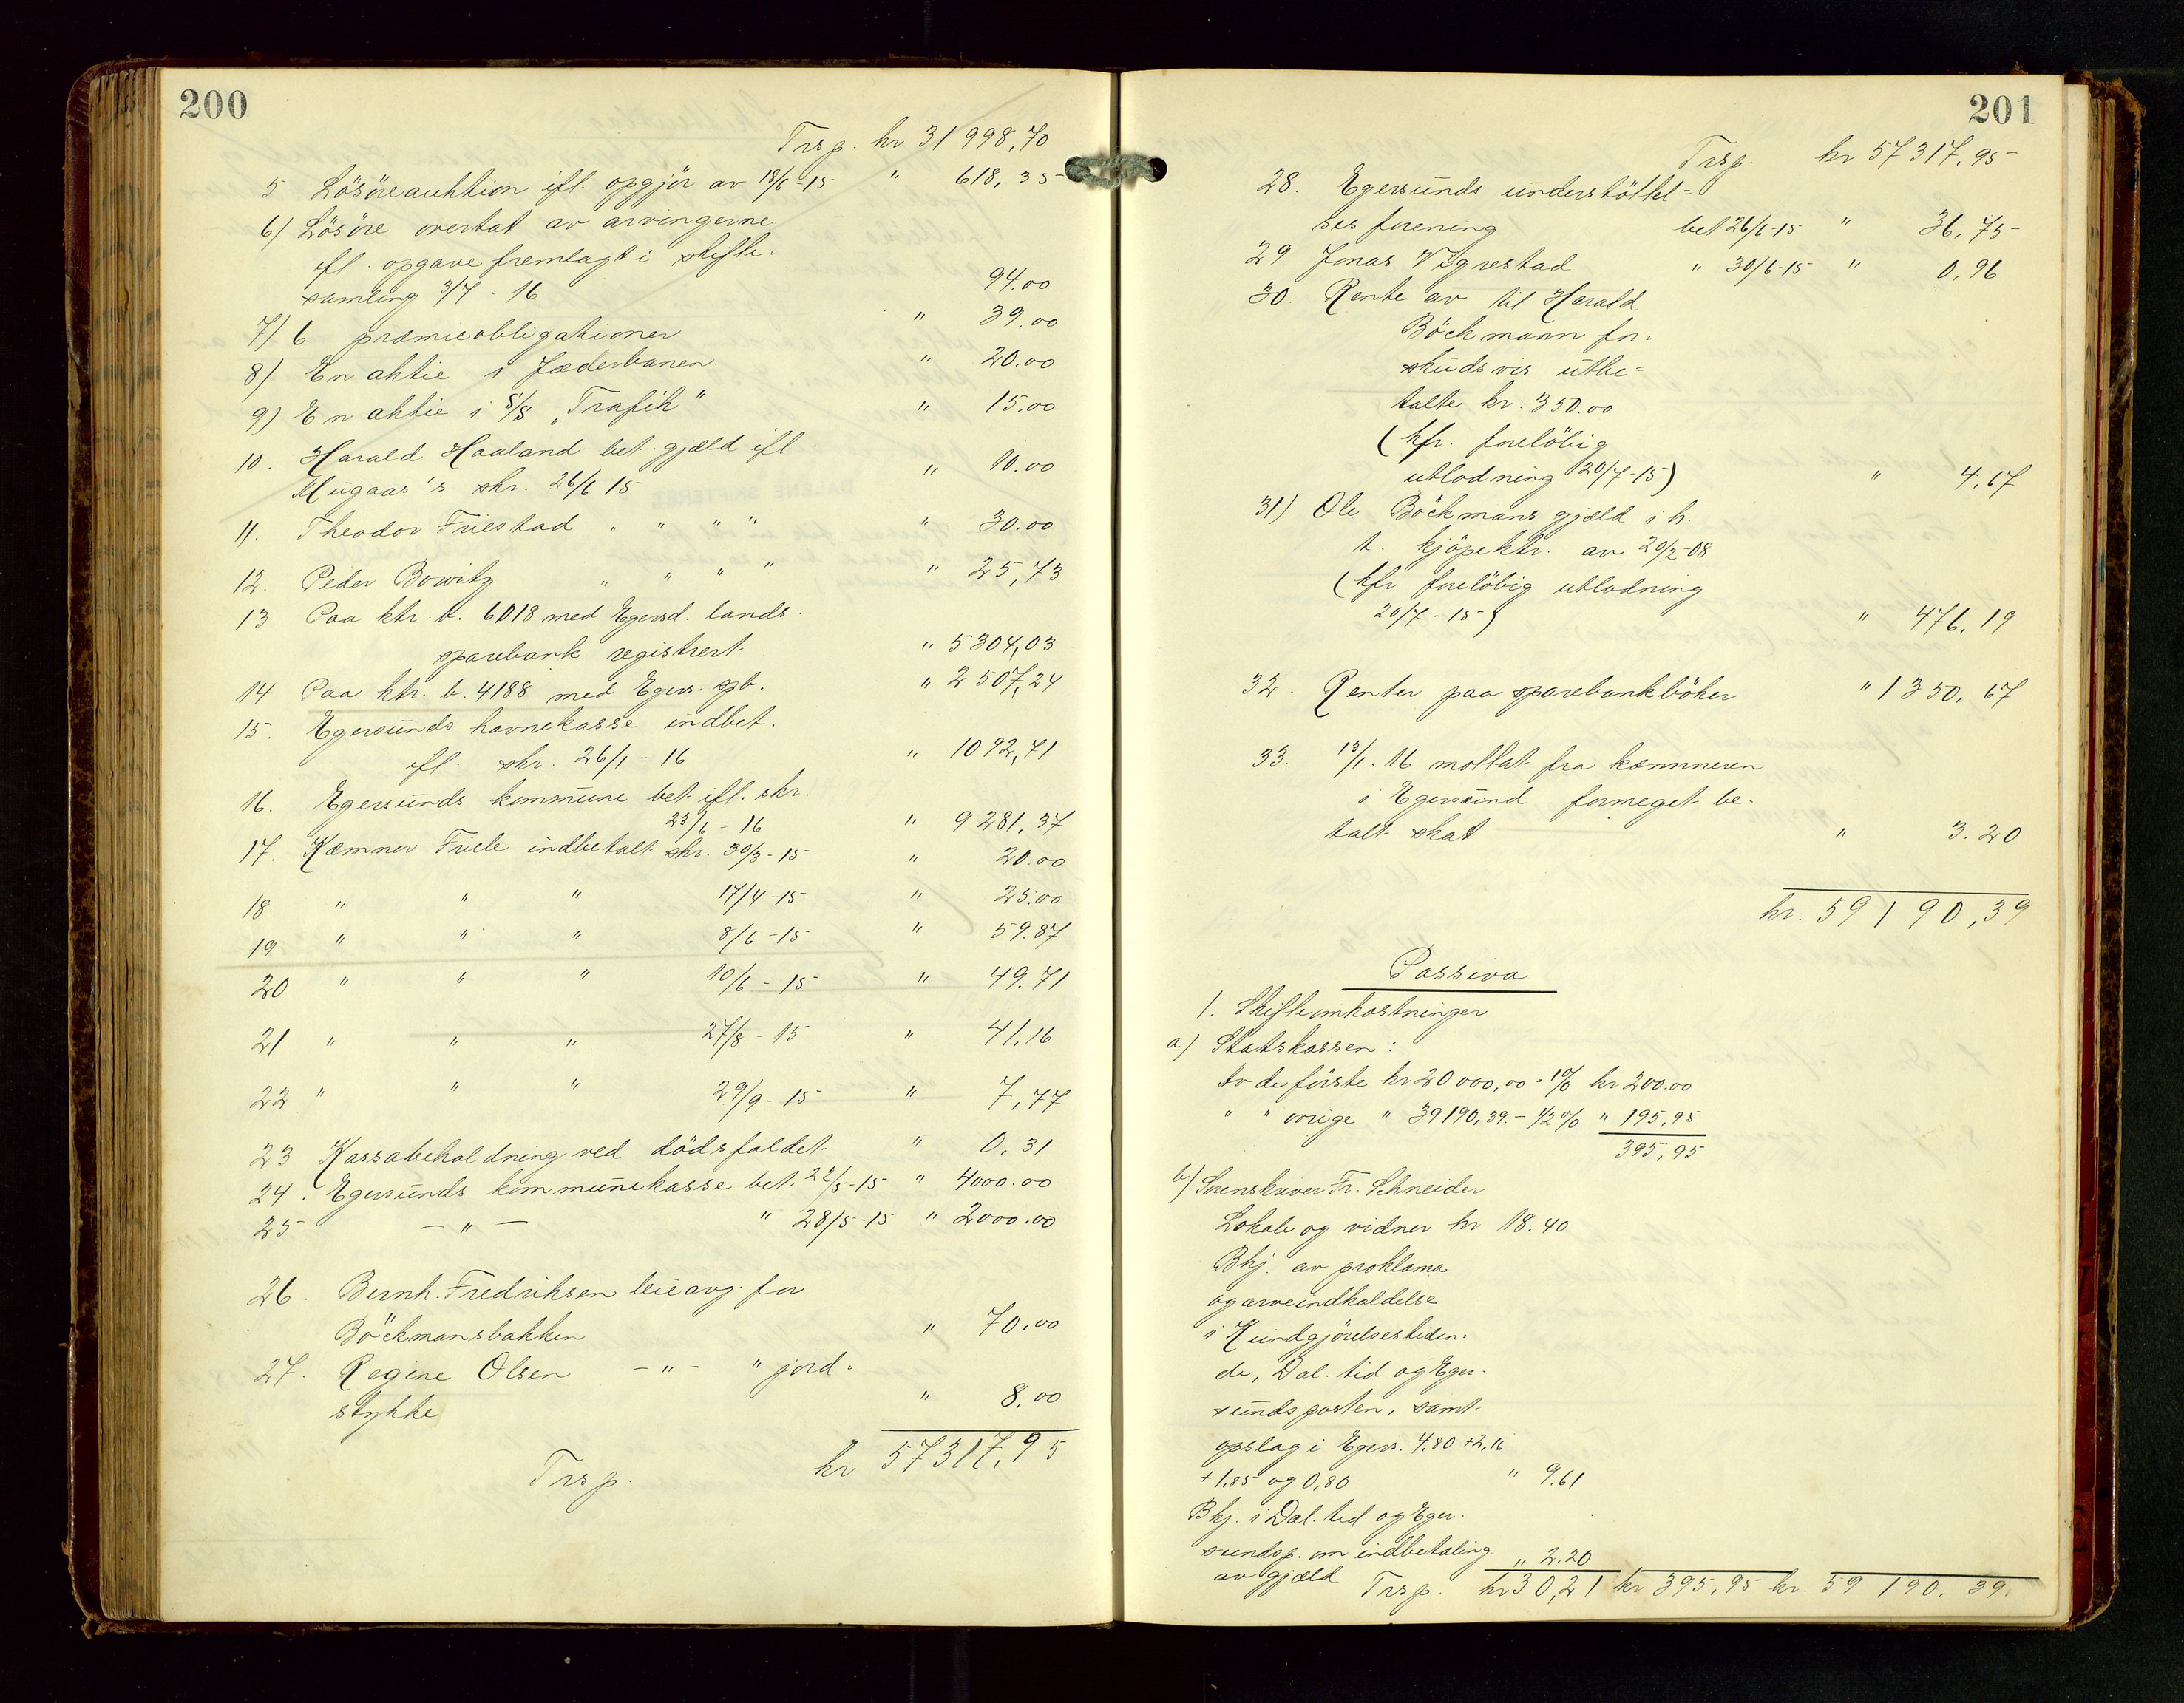 200
Trsp. kr 31 998,70
5 Lösöreauktion ifl. opgjör av 18/6-15 " 618,35
6) Lösöre overtat av arvingerne
ifl. opgave fremlagt i skifte-
samling 3/7 - 16 94.00
7) 6 præmieobligationer " 39.00
8) En aktie i Jæderbanen " 20.00
9) En aktie i S/S „Trafik" " 15.00
10. Harald Haaland bet. gjæld ifl
Mugaas's skr. 26/6 15 " 10.00
11. Theodor Friestad " " " " " 30.00
12. Peder Bowitz " " " " " 25,73
13 Paa ktr. b. 6018 med Egersd. lands.
sparebank registrert " 5304,03
14 Paa ktr. b. 4188 med Egers. spb. " 2507,24
15. Egersunds havnekasse indbet.
ifl. skr. 26/1 - 16 " 1092,71
16. Egersunds kommune bet. ifl. skr.
23/6 - 16 " 9281,37
17. Kæmner Friele indbetalt skr. 30/3-15 " 20.00
18 " " " 17/4-15 " 25.00
19 " " " 8/6-15 " 59.87
20 " " " 10/6-15 " 49.71
21 " " " 27/8-15 " 41,16
22 " " " 29/9-15 " 7,77
23 Kassabeholdning ved dödsfaldet " 0,31
24. Egersunds kommunekasse bet. 22/5-15 " 4000.00
25 - " - " 28/5-15 " 2000.00
26. Bernh. Fredriksen leieavg. for
Böckmansbakken " 70.00
27. Regine Olsen - " - " jord-
stykke " 8,00
Trsp. kr 57317,95
201
Trsp. kr 57317,95
28. Egersunds understöttel=
sesforening bet 26/6-15 " 36,75
29 Jonas Vigrestad " 30/6-15 " 0,96
30. Rente av til Harald
Böckmann for-
skudsvis utbe=
talte kr. 350.00
(kfr. forelöbig
utlodning 20/7-15) " 4,67
31) Ole Böckmans gjæld i h.
t. kjöpektr. av 20/2-08
(kfr forelöbig utlodning
20/7-15) " 476,19
32. Renter paa sparebankböker " 1350,67
33. 13/1. 16 mottat fra kæmneren
i Egersund formeget be-
talt skat " 3.20
kr. 59190,39
Passiva
1. Skifteomkostninger
a) Statskassen:
Av de förste kr 20000,00 - 1% kr 200.00
" " övrige " 39190,39. - 1/2% " 195,95
395,95
b) Sorenskriver Fr. Schneider
Lokale og vidner kr 18.40
Bkj. av proklama
og arveindkaldelse
i Kundgjörelsestiden-
de, Dal. tid og Eger-
sundsposten, samt
opslag i Egers. 4.80 + 2,16
+ 1.85 og 0,80 " 9.61
Bkj. i Dal. tid og Eger-
sundsp. om indbetaling
av gjæld " 2.20
Trsp. kr 30,21 kr 395,95 kr. 59190,39.